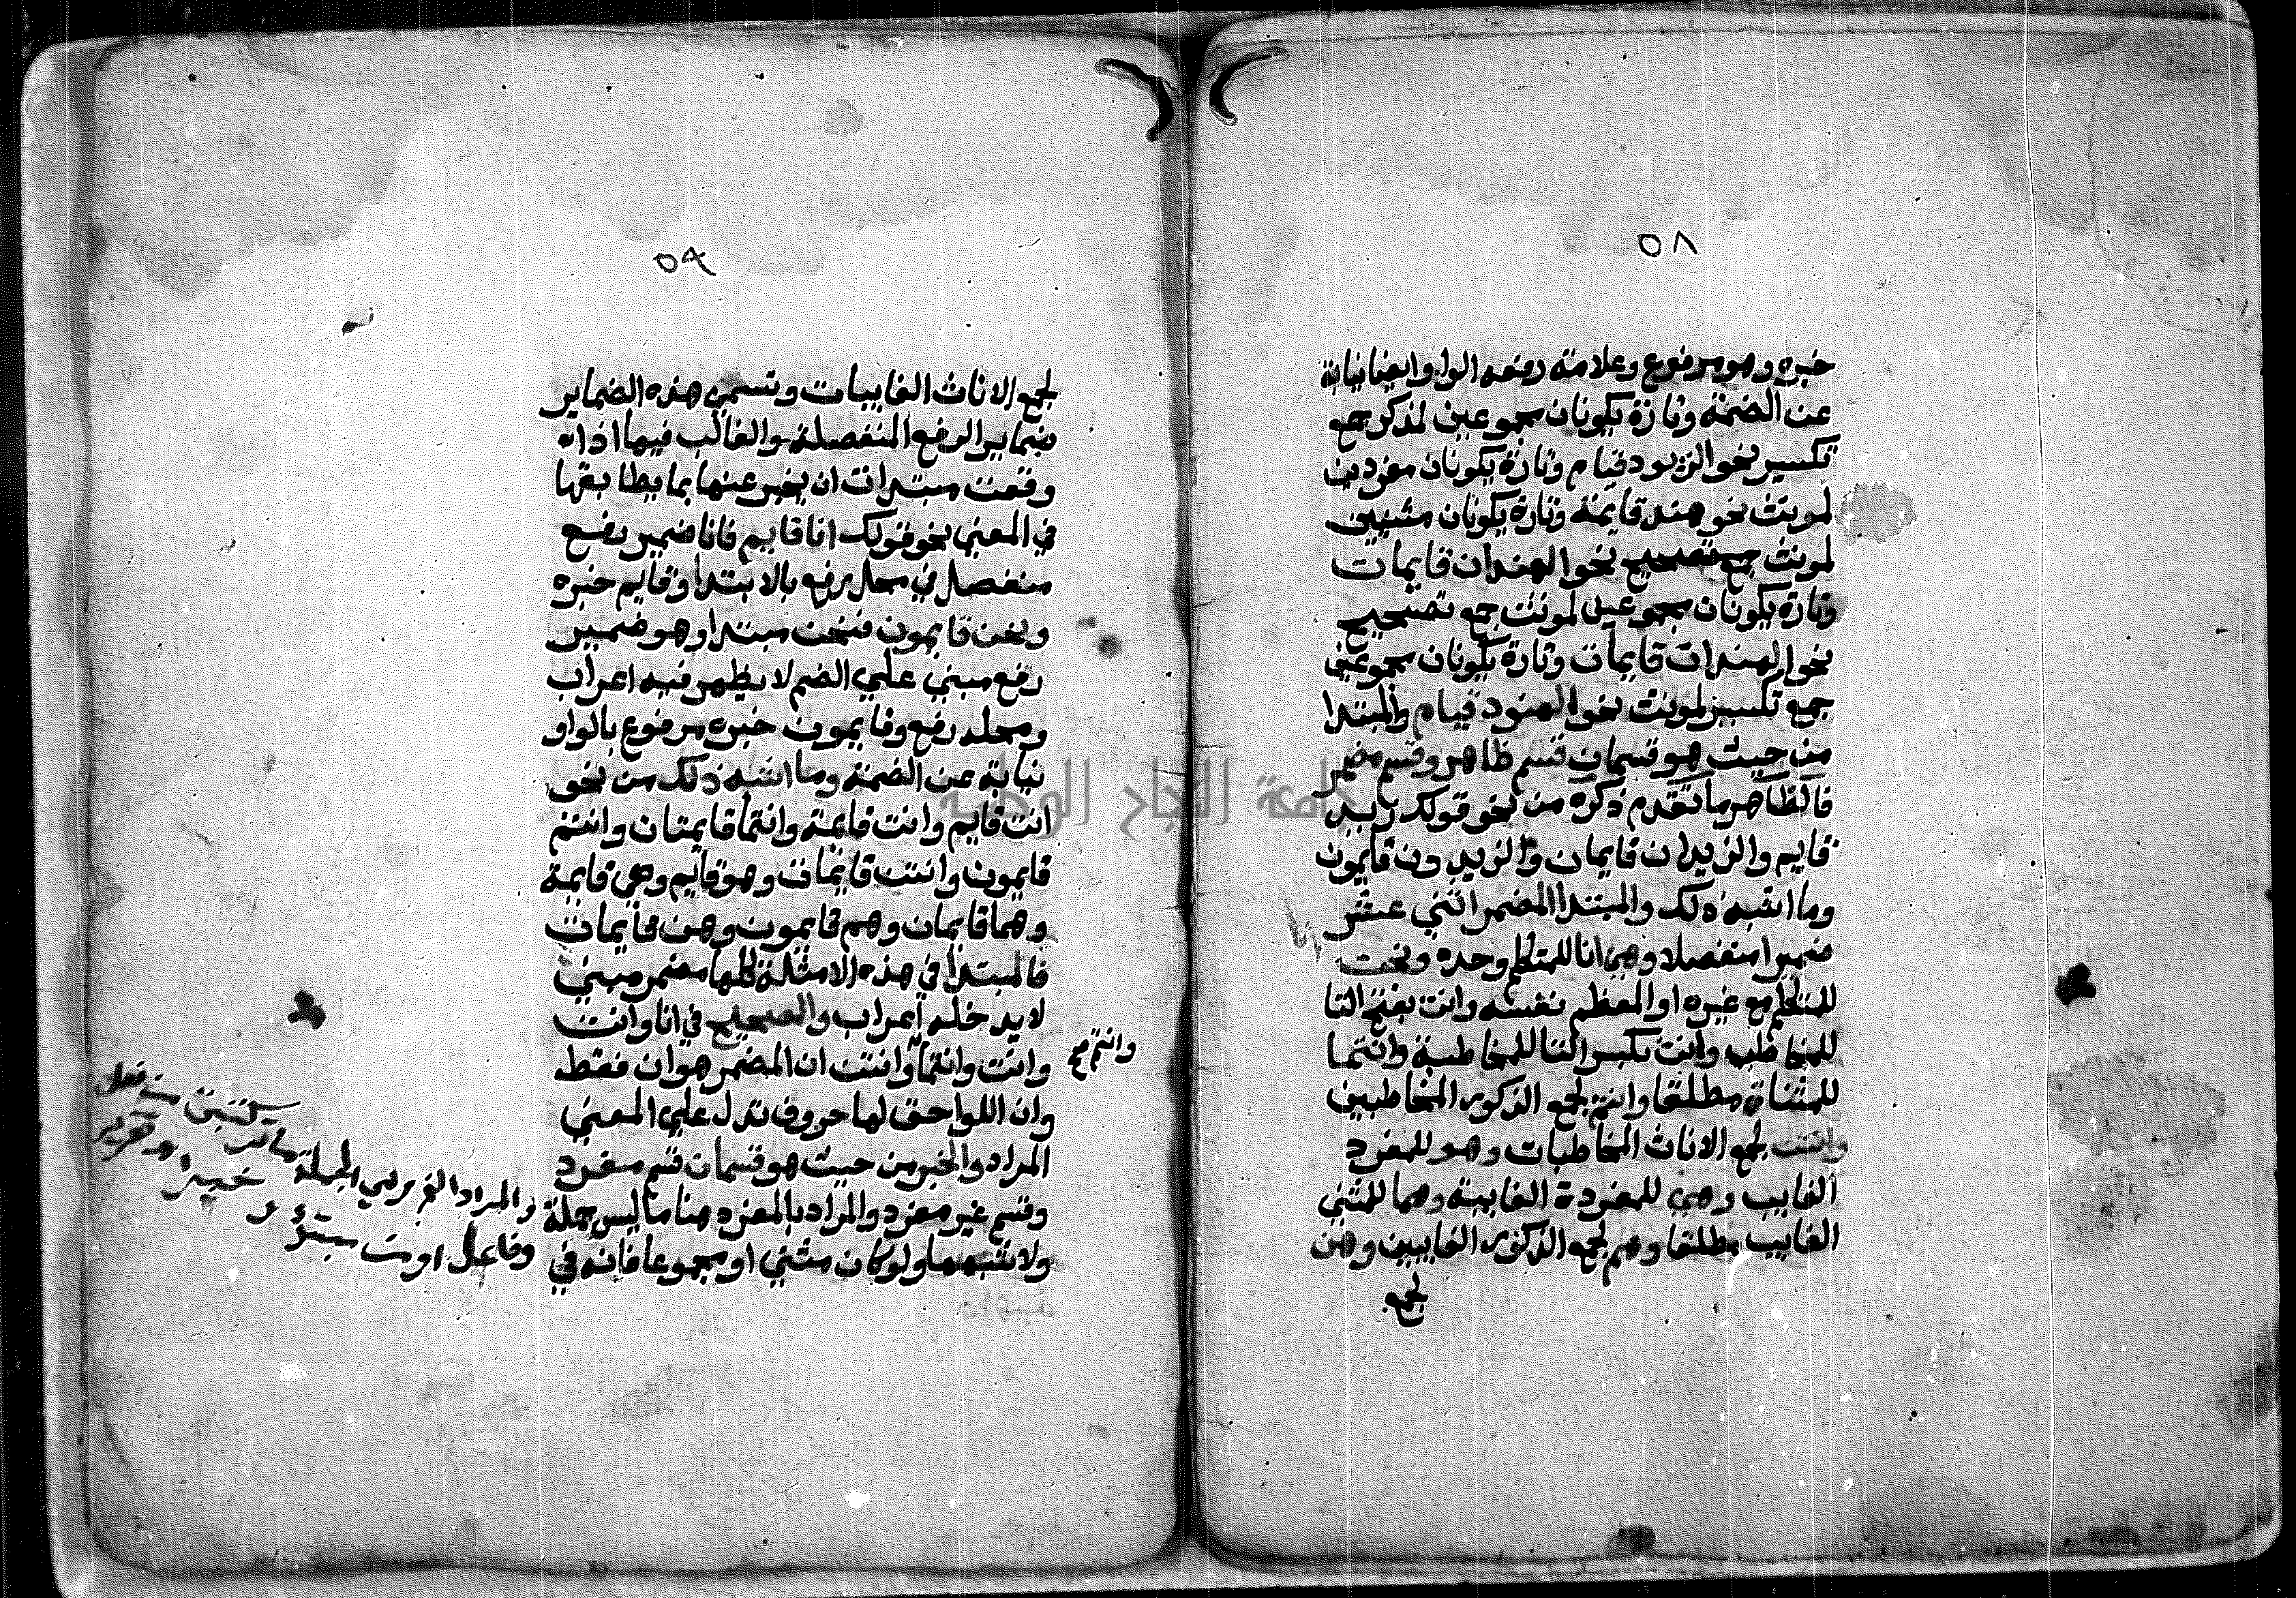 ٥٨
خبره وهو مرفوع وعلامة رفعه الواو ايضا نيابة
عن الضمة وتارة يكونان مجموعين لمذكر جمع
تكسير نحو الزيود قيام وتارة يكونان مفردين
لمونث نحو هند قايمة وتارة يكونان مثنيين
لمونث جمع تصحيح نحو الهندان قايمات
وتارة يكونان مجموعين لمونث جمع تصحيح
نحو الهندات قايمات وتارة يكونان مجموعين
جمع تكسير لمونث نحو الهنود قيام والمبتدا
من حيث هو قسمان قسم ظاهر وقسم مضمر
فالظاهر ما تقدم ذكره من نحو قولك زيد
قايم والزيدان قايمان والزيدون قايمون
وما اشبه ذلك والمبتدا المضمر اثني عشر
ضميرا منفصلا وهي انا للمتكلم وحده ونحن
للمتكلم مع غيره او المعظم نفسه وانت بفتح التا
للمخاطب وانت بكسر التا للمخاطبة وانتما
للمثناة مطلقا وانتم لجمع الذكور المخاطبين
وانتن لجمع الاناث المخاطبات وهو للمفرد
الغايب وهي للمفردة الغايبة وهما للمثني
الغايب مطلقا وهم لجمع الذكور الغايبين وهن
لجمع
٥٩
لجمع الاناث الغايبات وتسمي هذه الضماير
ضماير الرفع المنفصلة والغالب فيها اذا
وقعت مبتدات ان يخبر عنها بما يطابقها
في المعني نحو قولك انا قايم فانا ضمير رفع
منفصل في محل رفع بالابتدا وقايم خبره
ونحن قايمون فنحن مبتدا وهو ضمير
رفع مبني علي الضم لا يظهر فيه اعراب
ومحله رفع وقايمون خبره مرفوع بالواو
نيابة عن الضمة وما اشبه ذلك من نحو
انت قايم وانت قايمة وانتما قايمتان وانتم
قايمون وانتن قايمات وهو قايم وهي قايمة
وهما قايمان وهم قايمون وهن قايمات
فالمبتدا في هذه الامثلة كلها مضمر مبني
لا يدخله اعراب والصحيح في انا وانت
وانت وانتما وانتن ان المضمر هو ان فقط
وانتم صح
وان اللواحق لها حروف تدل علي المعني
المراد والخبر من حيث هو قسمان قسم مفرد
وقسم غير مفرد والمراد بالمفرد هنا ما ليس جملة
ولا شبهها ولو كان مثني او مجموعا فانه في
من فعل
والمراد الجملة
وفاعل او من خبر